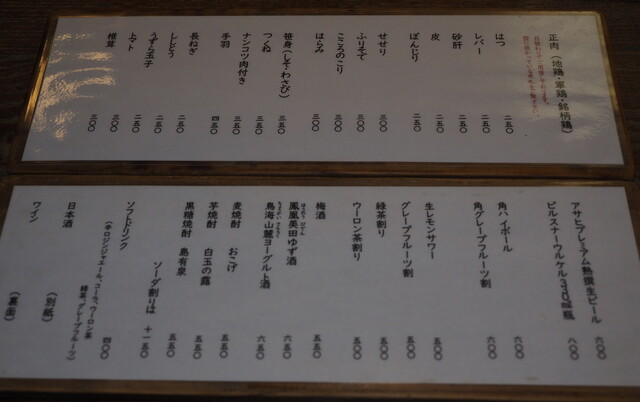 正肉(地鶏・軍鶏・銘柄鶏)
はつ 二五〇
レバー 二五〇
砂肝 二五〇
皮 二五〇
ぼんじり 二五〇
せせり 三〇〇
ふりそで 三〇〇
こころのこり 三〇〇
はらみ 三〇〇
笹身(しそ・わさび) 三五〇
つくね 三五〇
ナンコツ肉付き 三五〇
手羽 四五〇
長ねぎ 二五〇
ししとう 二五〇
うずら玉子 二五〇
トマト 二五〇
椎茸 三〇〇
アサヒプレミアム熟撰生ビール 六〇〇
ピルスナーウルケル330ml瓶 八〇〇
角ハイボール 六〇〇
角グレープフルーツ割 六〇〇
生レモンサワー 五〇〇
グレープフルーツ割 五〇〇
緑茶割り 五〇〇
ウーロン茶割り 五〇〇
梅酒 五五〇
鳳凰美田ゆず酒 六五〇
鳥海山麓ヨーグルト酒 六五〇
麦焼酎 おこげ 五五〇
芋焼酎 白玉の露 五五〇
黒糖焼酎 島有泉 五五〇
ソーダ割りは 十一五〇
ソフトドリンク 四〇〇
(辛口ジンジャエール、コーラ、ウーロン茶
緑茶、グレープフルーツ)
日本酒 (別紙)
ワイン (裏面)